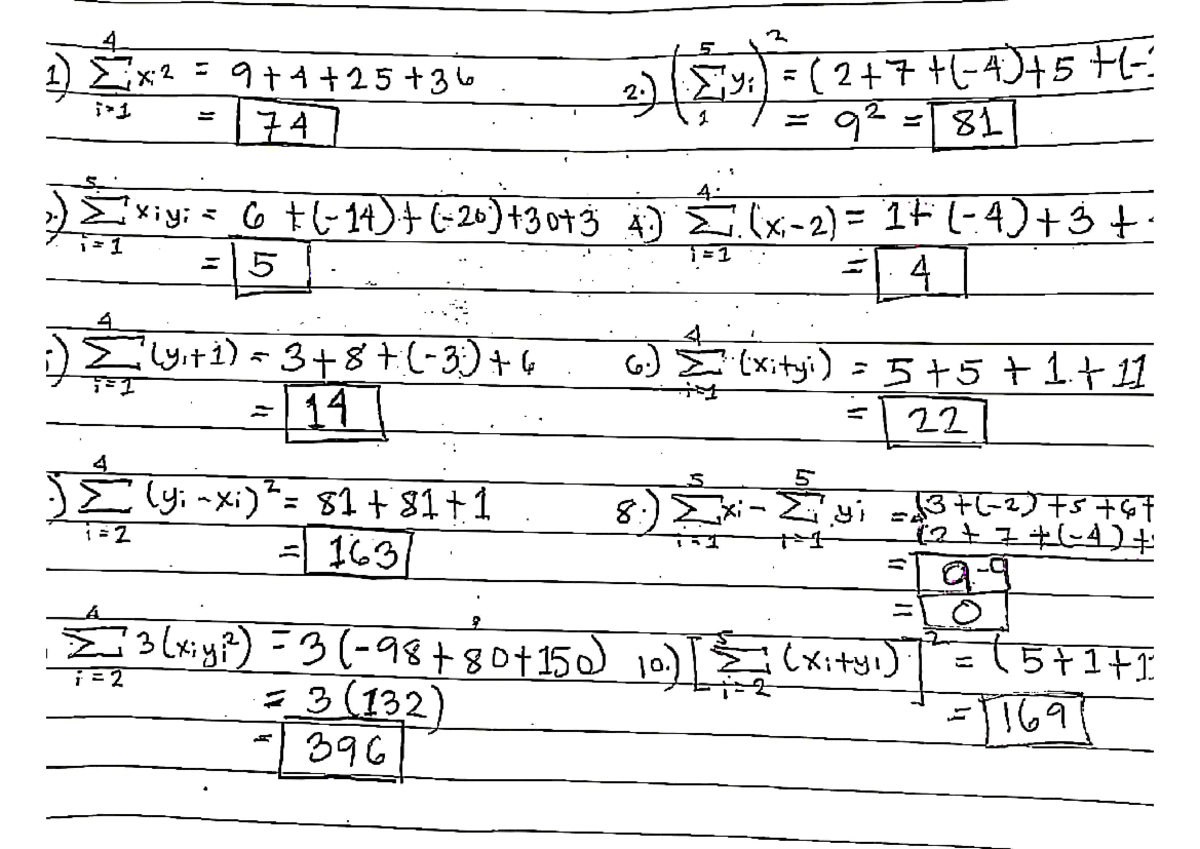 1) ∑ᵢ₌₁⁴ xᵢ² = 9 + 4 + 25 + 36
= 74
2.) (∑₁⁵ yᵢ)² = (2 + 7 + (-4) + 5 + (-
= 9² = 81
.) ∑ᵢ₌₁⁵ xᵢyᵢ = 6 + (-14) + (-20) + 30 + 3
= 5
4.) ∑ᵢ₌₁⁴ (xᵢ - 2) = 1 + (-4) + 3 +
= 4
) ∑ᵢ₌₁⁴ (yᵢ + 1) = 3 + 8 + (-3) + 6
= 14
6.) ∑ᵢ₌₁⁴ (xᵢ + yᵢ) = 5 + 5 + 1 + 11
= 22
.) ∑ᵢ₌₂⁴ (yᵢ - xᵢ)² = 81 + 81 + 1
= 163
8.) ∑ᵢ₌₁⁵ xᵢ - ∑ᵢ₌₁⁵ yᵢ = (3 + (-2) + 5 + 6 +
(2 + 7 + (-4) +
= 9 - 9
= 0
∑ᵢ₌₂⁴ 3(xᵢyᵢ²) = 3(-98 + 80 + 150)
= 3(132)
= 396
10.) [∑ᵢ₌₂⁵ (xᵢ + yᵢ)]² = (5 + 1 + 1
= 169